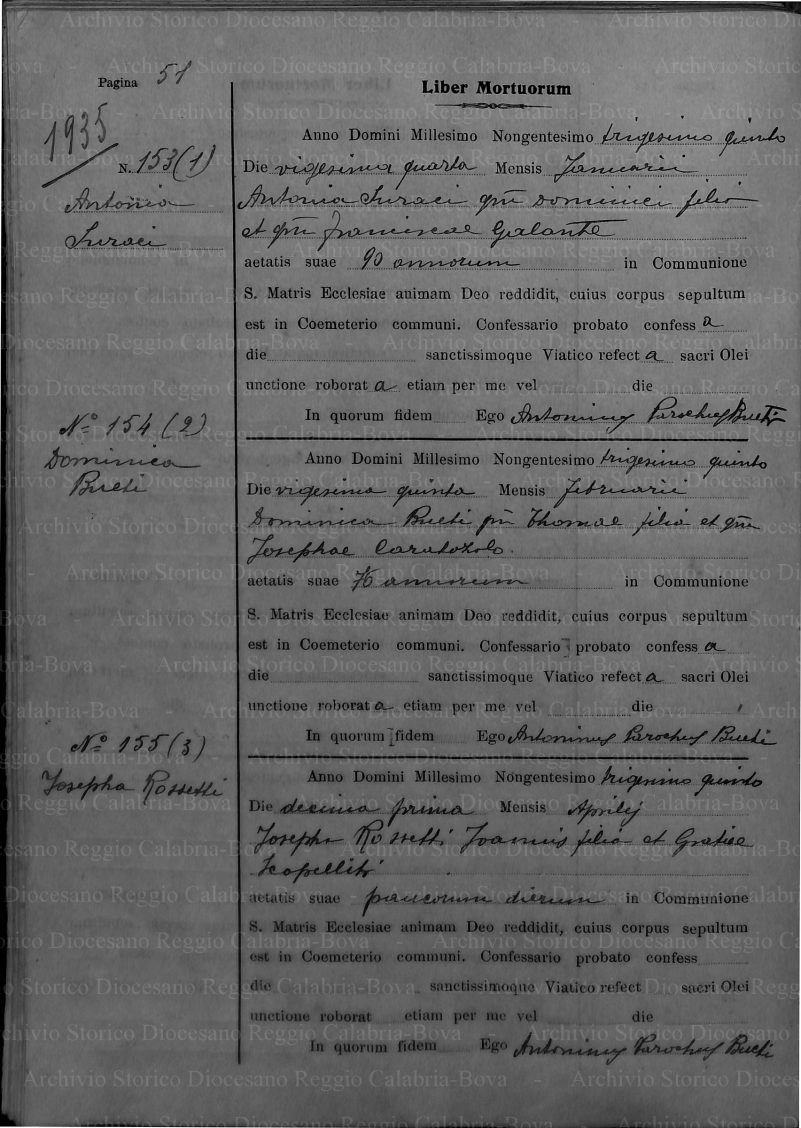 Pagina 51
Liber Mortuorum
1935
N. 153 (1)
Antonia
Suraci
Anno Domini Millesimo Nongentesimo trigesimo quinto
Die vigesima quarta Mensis Januarii
Antonia Suraci qm Dominici filia
et qm Franciscae Galante
aetatis suae 90 annorum in Communione
S. Matris Ecclesiae animam Deo reddidit, cuius corpus sepultum
est in Coemeterio communi. Confessario probato confess a
die sanctissimoque Viatico refect a sacri Olei
unctione roborat a etiam per me vel die
In quorum fidem Ego Antoninus Parochus Bueti
No 154 (2)
Dominica
Bueti
Anno Domini Millesimo Nongentesimo trigesimo quinto
Die vigesima quinta Mensis Februarii
Dominica Bueti qm Thomae filia et qm
Josephae
aetatis suae annorum in Communione
S. Matris Ecclesiae animam Deo reddidit, cuius corpus sepultum
est in Coemeterio communi. Confessario probato confess a
die sanctissimoque Viatico refect a sacri Olei
unctione roborat a etiam per me vel die
In quorum fidem Ego Antoninus Parochus Bueti
No 155 (3)
Josepha Rossetti
Anno Domini Millesimo Nongentesimo trigesimo quinto
Die decima prima Mensis Aprilis
Josepha Rossetti Joannis filia et Gratiae
aetatis suae paucorum dierum in Communione
S. Matris Ecclesiae animam Deo reddidit, cuius corpus sepultum
est in Coemeterio communi. Confessario probato confess
die sanctissimoque Viatico refect sacri Olei
unctione roborat etiam per me vel die
In quorum fidem Ego Antoninus Parochus Bueti
Archivio Storico Diocesano Reggio Calabria-Bova